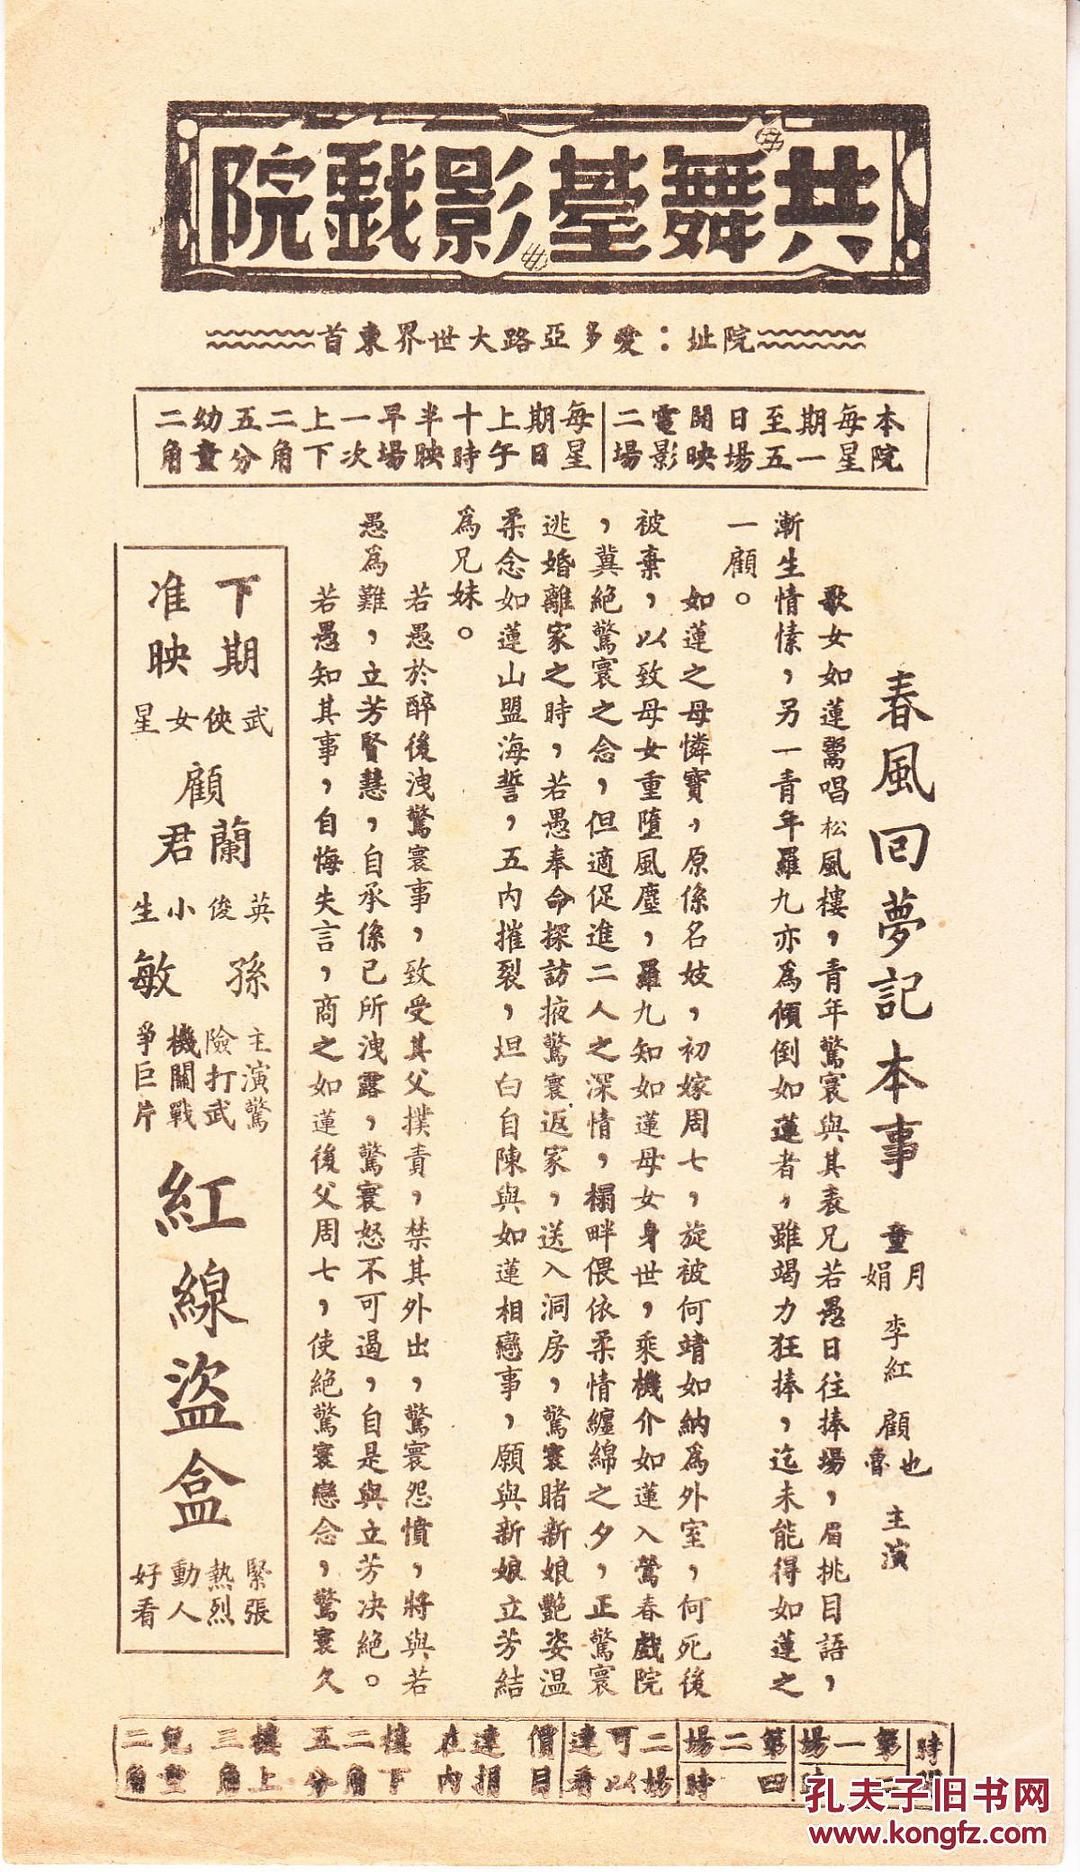 共舞臺影戲院
院址：愛多亞路大世界東首
本院每星期一至五日場開映電影二場
每星期日上午十時半映早場一次上下二角五分幼童二角
春風回夢記本事
童月娟 李紅 顧也魯 主演
歌女如蓮鬻唱松風樓，青年驚寰與其表兄若愚日往捧場，眉挑目語，
漸生情愫，另一青年羅九亦為傾倒如蓮者，雖竭力狂捧，迄未能得如蓮之
一顧。
如蓮之母憐寶，原係名妓，初嫁周七，旋被何靖如納為外室，何死後
被棄，以致母女重墮風塵，羅九知如蓮母女身世，乘機介如蓮入鶯春戲院
，冀絕驚寰之念，但適促進二人之深情，榻畔偎依柔情纏綿之夕，正驚寰
逃婚離家之時，若愚奉命探訪掖驚寰返家，送入洞房，驚寰睹新娘艷姿溫
柔念如蓮山盟海誓，五內摧裂，坦白自陳與如蓮相戀事，願與新娘立芳結
為兄妹。
若愚於醉後洩驚寰事，致受其父撲責，禁其外出，驚寰怨憤，將與若
愚為難，立芳賢慧，自承係己所洩露，驚寰怒不可遏，自是與立芳決絕。
若愚知其事，自悔失言，商之如蓮後父周七，使絕驚寰戀念，驚寰久
下期准映
武俠女星
顧蘭君
英俊小生
孫敏
主演驚險打武機關戰爭巨片
紅線盜盒
緊張熱烈動人好看
時間
第一場
第二場四時
二場可以連看
價目
連捐在內
樓下二角五分
樓上三角
兒童二角
孔夫子旧书网
www.kongfz.com